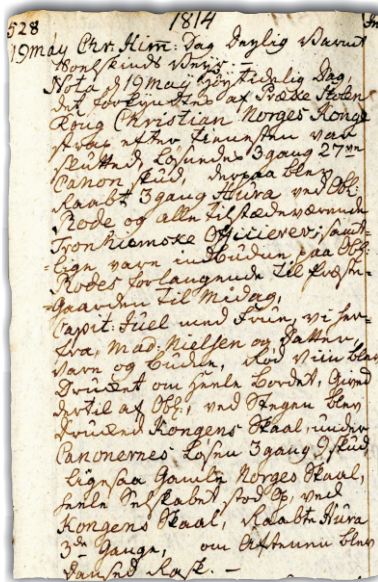 528 1814
19 may Chr: Him: Dag Deylig Varmt
Soelskinds Veyr. -
Nota d 19 may høytidelig Dag,
det forkyndtes af Præke Stolen
Kong Christian Norges Konge
strax efter tienesten var
slutted, Løsundes 3 gang 27ve
Canon skud, derpaa blev
Raabt 3 gang Hura ved Obl:
Rode og alle tilstædeværende
Tronhiemske Officierer, samt-
lige vare indbuden paa Obl:
Rodes forlangende til Præste-
gaarden til Midag,
Capit: Juel med Frue, vi her-
fra, Mad: Nielsen og Datter
vare og buden, Rød Viin blev
Drucket om heele Bordet, Gived
dertil af Obl:, ved Stegen blev
Drucked Kongens Skaal, under
Canonernes Løsen 3 gang 9 skud
ligesaa Gamle Norges Skaal,
heele Selskabet stod op, ved
Kongens Skaal, Raabte Hura
3de Gange, om Aftenen blev
Danset Rask. -